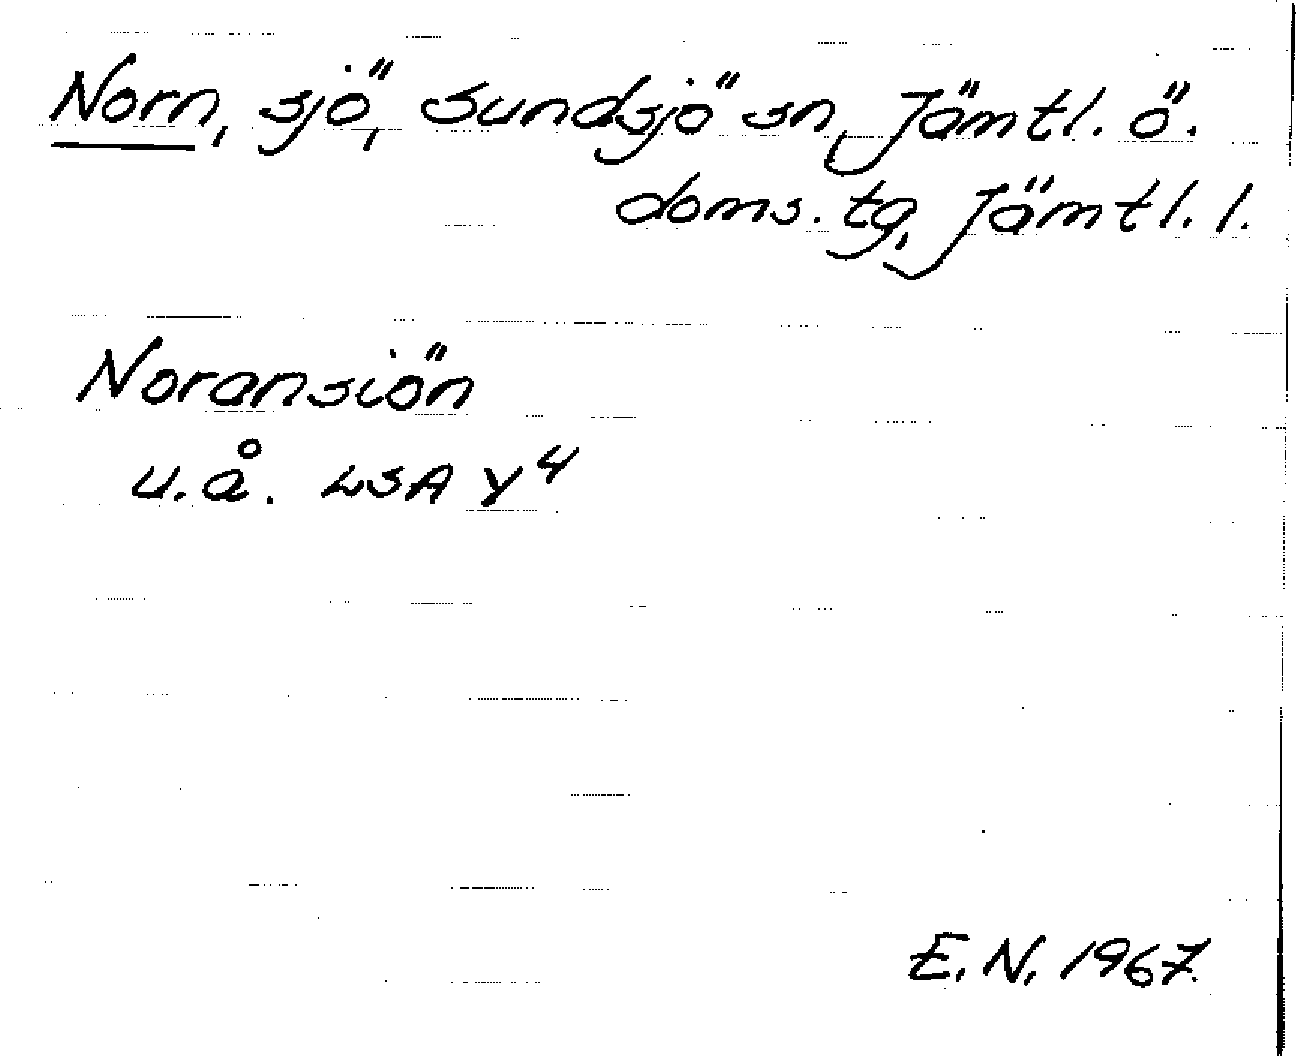 Norn, sjö, Sundsjö sn, Jämtl. ö.
doms. tg, Jämtl. l.
Noransiön
u.å. LSA Y⁴
E. N. 1967.